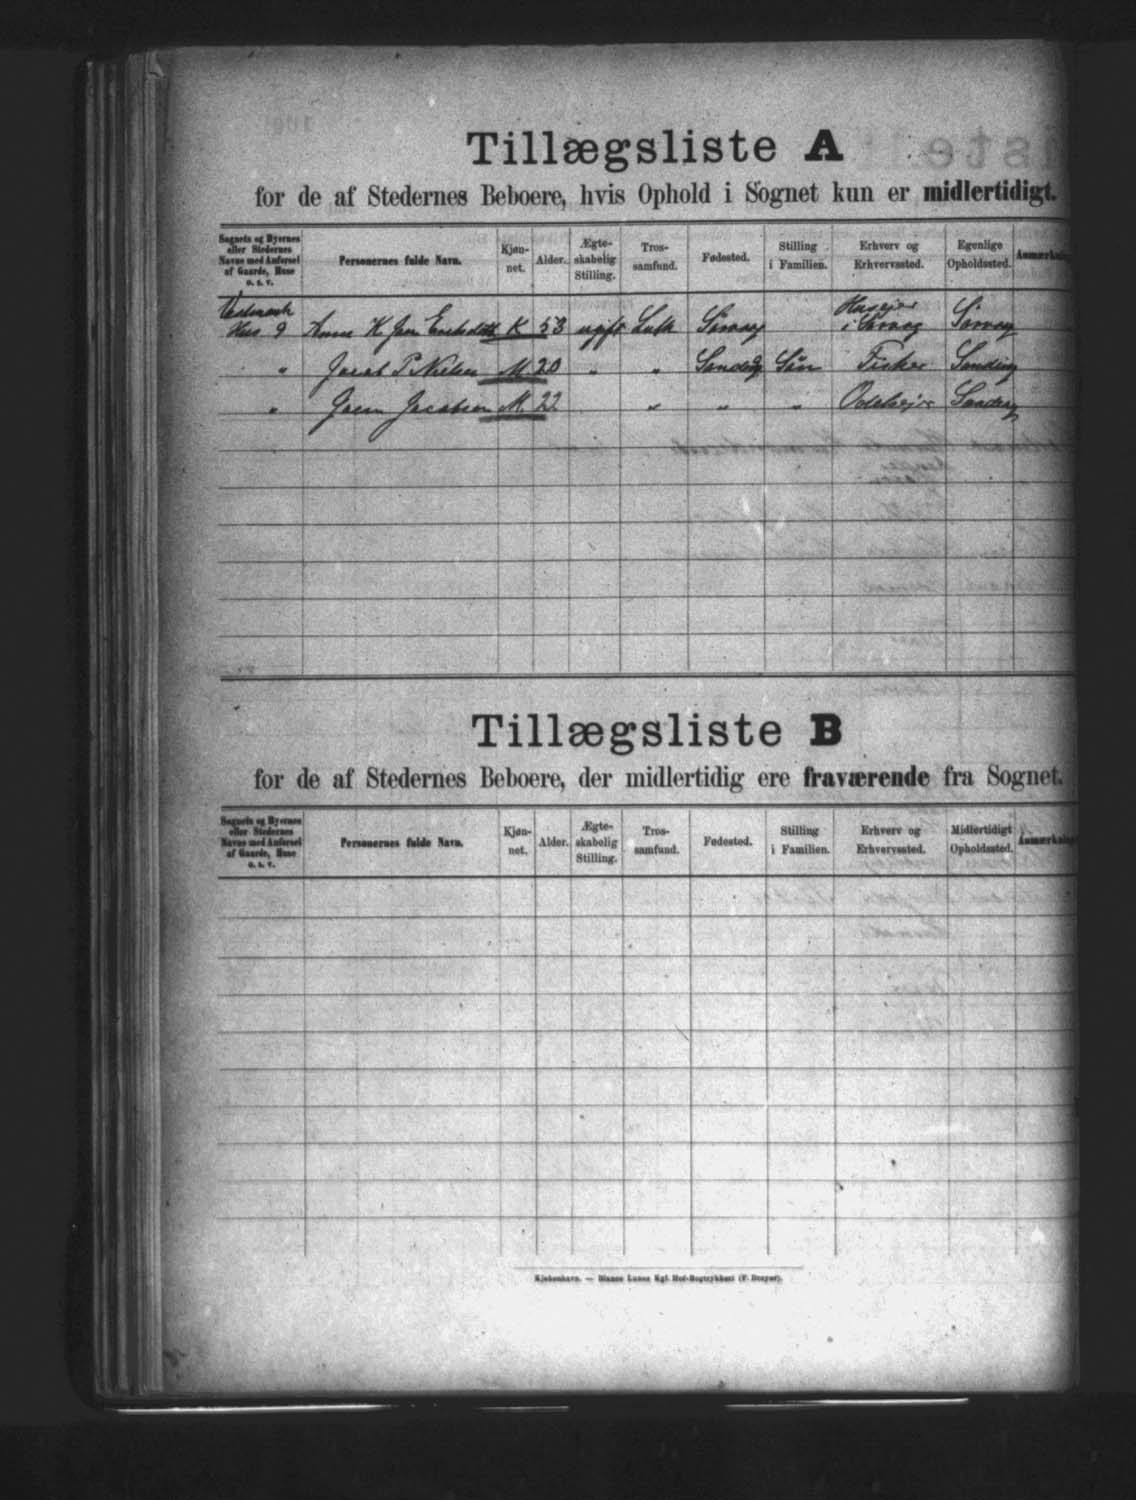 Tillægsliste A
for de af Stedernes Beboere, hvis Ophold i Sognet kun er midlertidigt.
Sognets og Byernes eller Stedernes Navne med Anførsel af Gaarde, Huse o. s. v. Personernes fulde Navn. Kjøn-net. Alder. Ægte-skabelig Stilling. Tros-samfund. Fødested. Stilling i Familien. Erhverv og Erhvervssted. Egenlige Opholdssted. Anmærkning
Hus 9 K 53 ugift Luth Sørvaag Husejer i Sørvaag Sørvaag
" Jacob P Nielsen M 20 " " Sandvig Søn Fisker Sandvig
" Joen Jacobsen M 22 " " " Sandvig
Tillægsliste B
for de af Stedernes Beboere, der midlertidig ere fraværende fra Sognet.
Sognets og Byernes eller Stedernes Navne med Anførsel af Gaarde, Huse o. s. v. Personernes fulde Navn. Kjøn-net. Alder. Ægte-skabelig Stilling. Tros-samfund. Fødested. Stilling i Familien. Erhverv og Erhvervssted. Midlertidigt Opholdssted. Anmærkning
Kjøbenhavn. — Bianco Lunos Kgl. Hof-Bogtrykkeri (F. Dreyer).